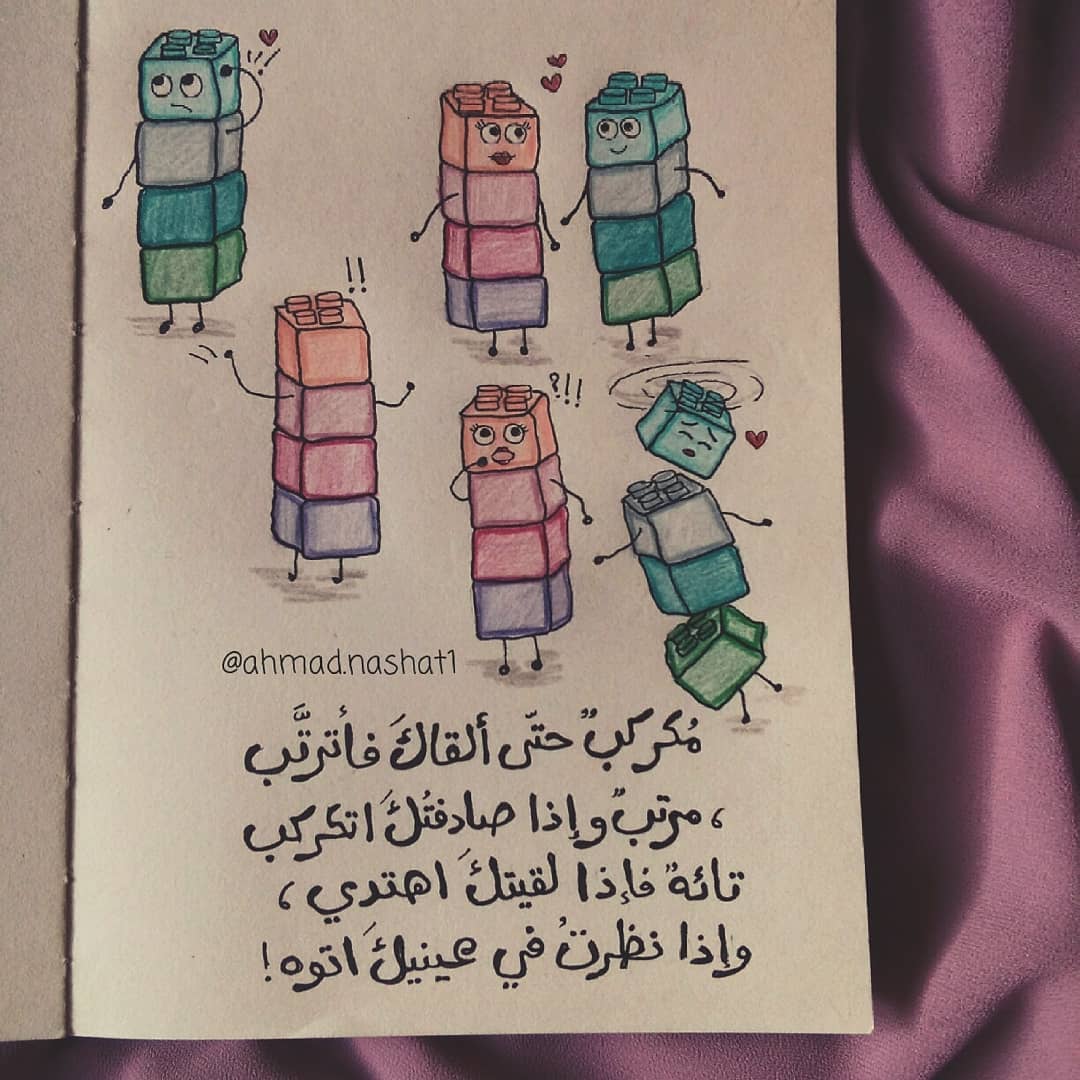 !!
?!!
@ahmad.nashat1
مُكركبٌ حتّى ألقاكَ فأترتَّب
، مرتبٌ وإذا صادفتُكَ اتكركب
تائهٌ فإذا لقيتكَ اهتدي ،
وإذا نظرتُ في عينيكَ اتوه !